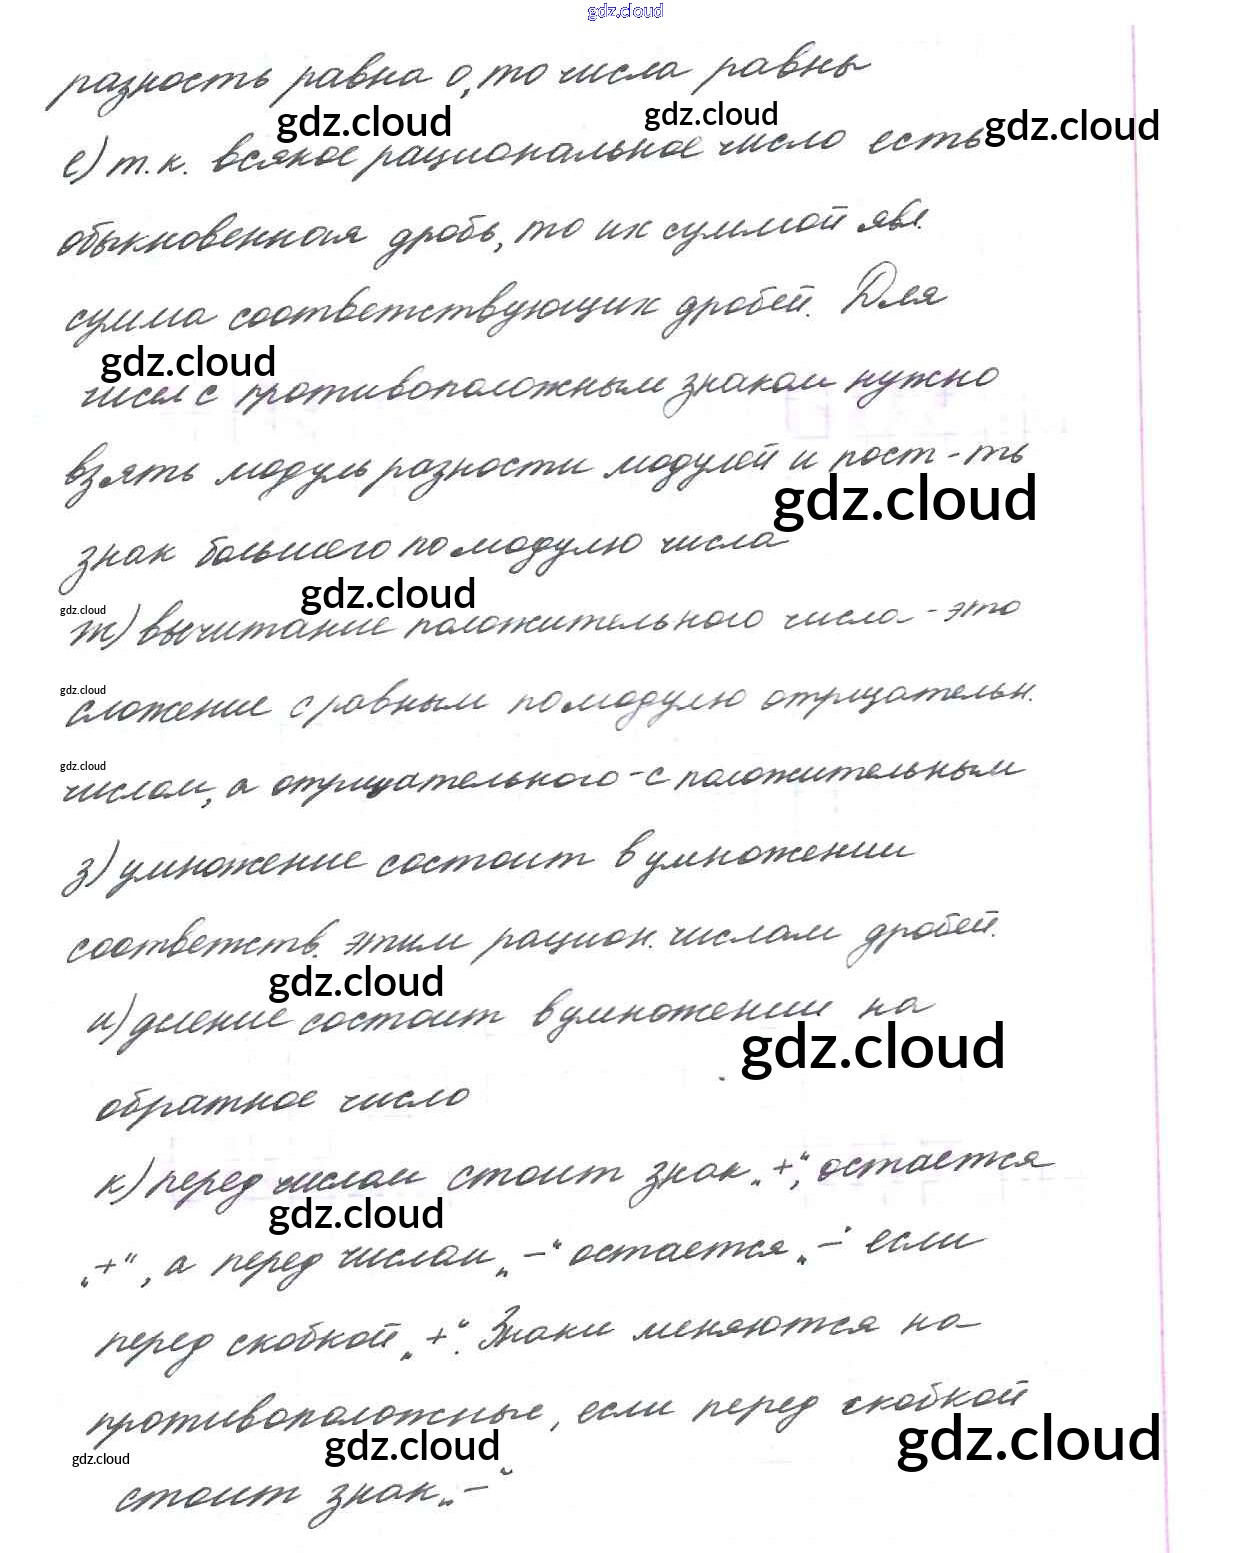 gdz.cloud
разность равна 0, то числа равны
gdz.cloud gdz.cloud gdz.cloud
е) т.к. всякое рациональное число есть
обыкновенная дробь, то их суммой явл.
сумма соответствующих дробей. Для
gdz.cloud
чисел с противоположным знаком нужно
взять модуль разности модулей и пост-ть
gdz.cloud
знак большего по модулю числа
gdz.cloud gdz.cloud
ж) вычитание положительного числа - это
gdz.cloud
сложение с равным по модулю отрицательн.
gdz.cloud
числом, а отрицательного - с положительным
з) умножение состоит в умножении
соответств. этим рацион. числам дробей.
gdz.cloud
и) деление состоит в умножении на
gdz.cloud
обратное число
к) перед числом стоит знак „+“, остается
gdz.cloud
„+“, а перед числом „–“ остается „–“ если
перед скобкой „+“. Знаки меняются на
противоположные, если перед скобкой
gdz.cloud gdz.cloud gdz.cloud
стоит знак „–“